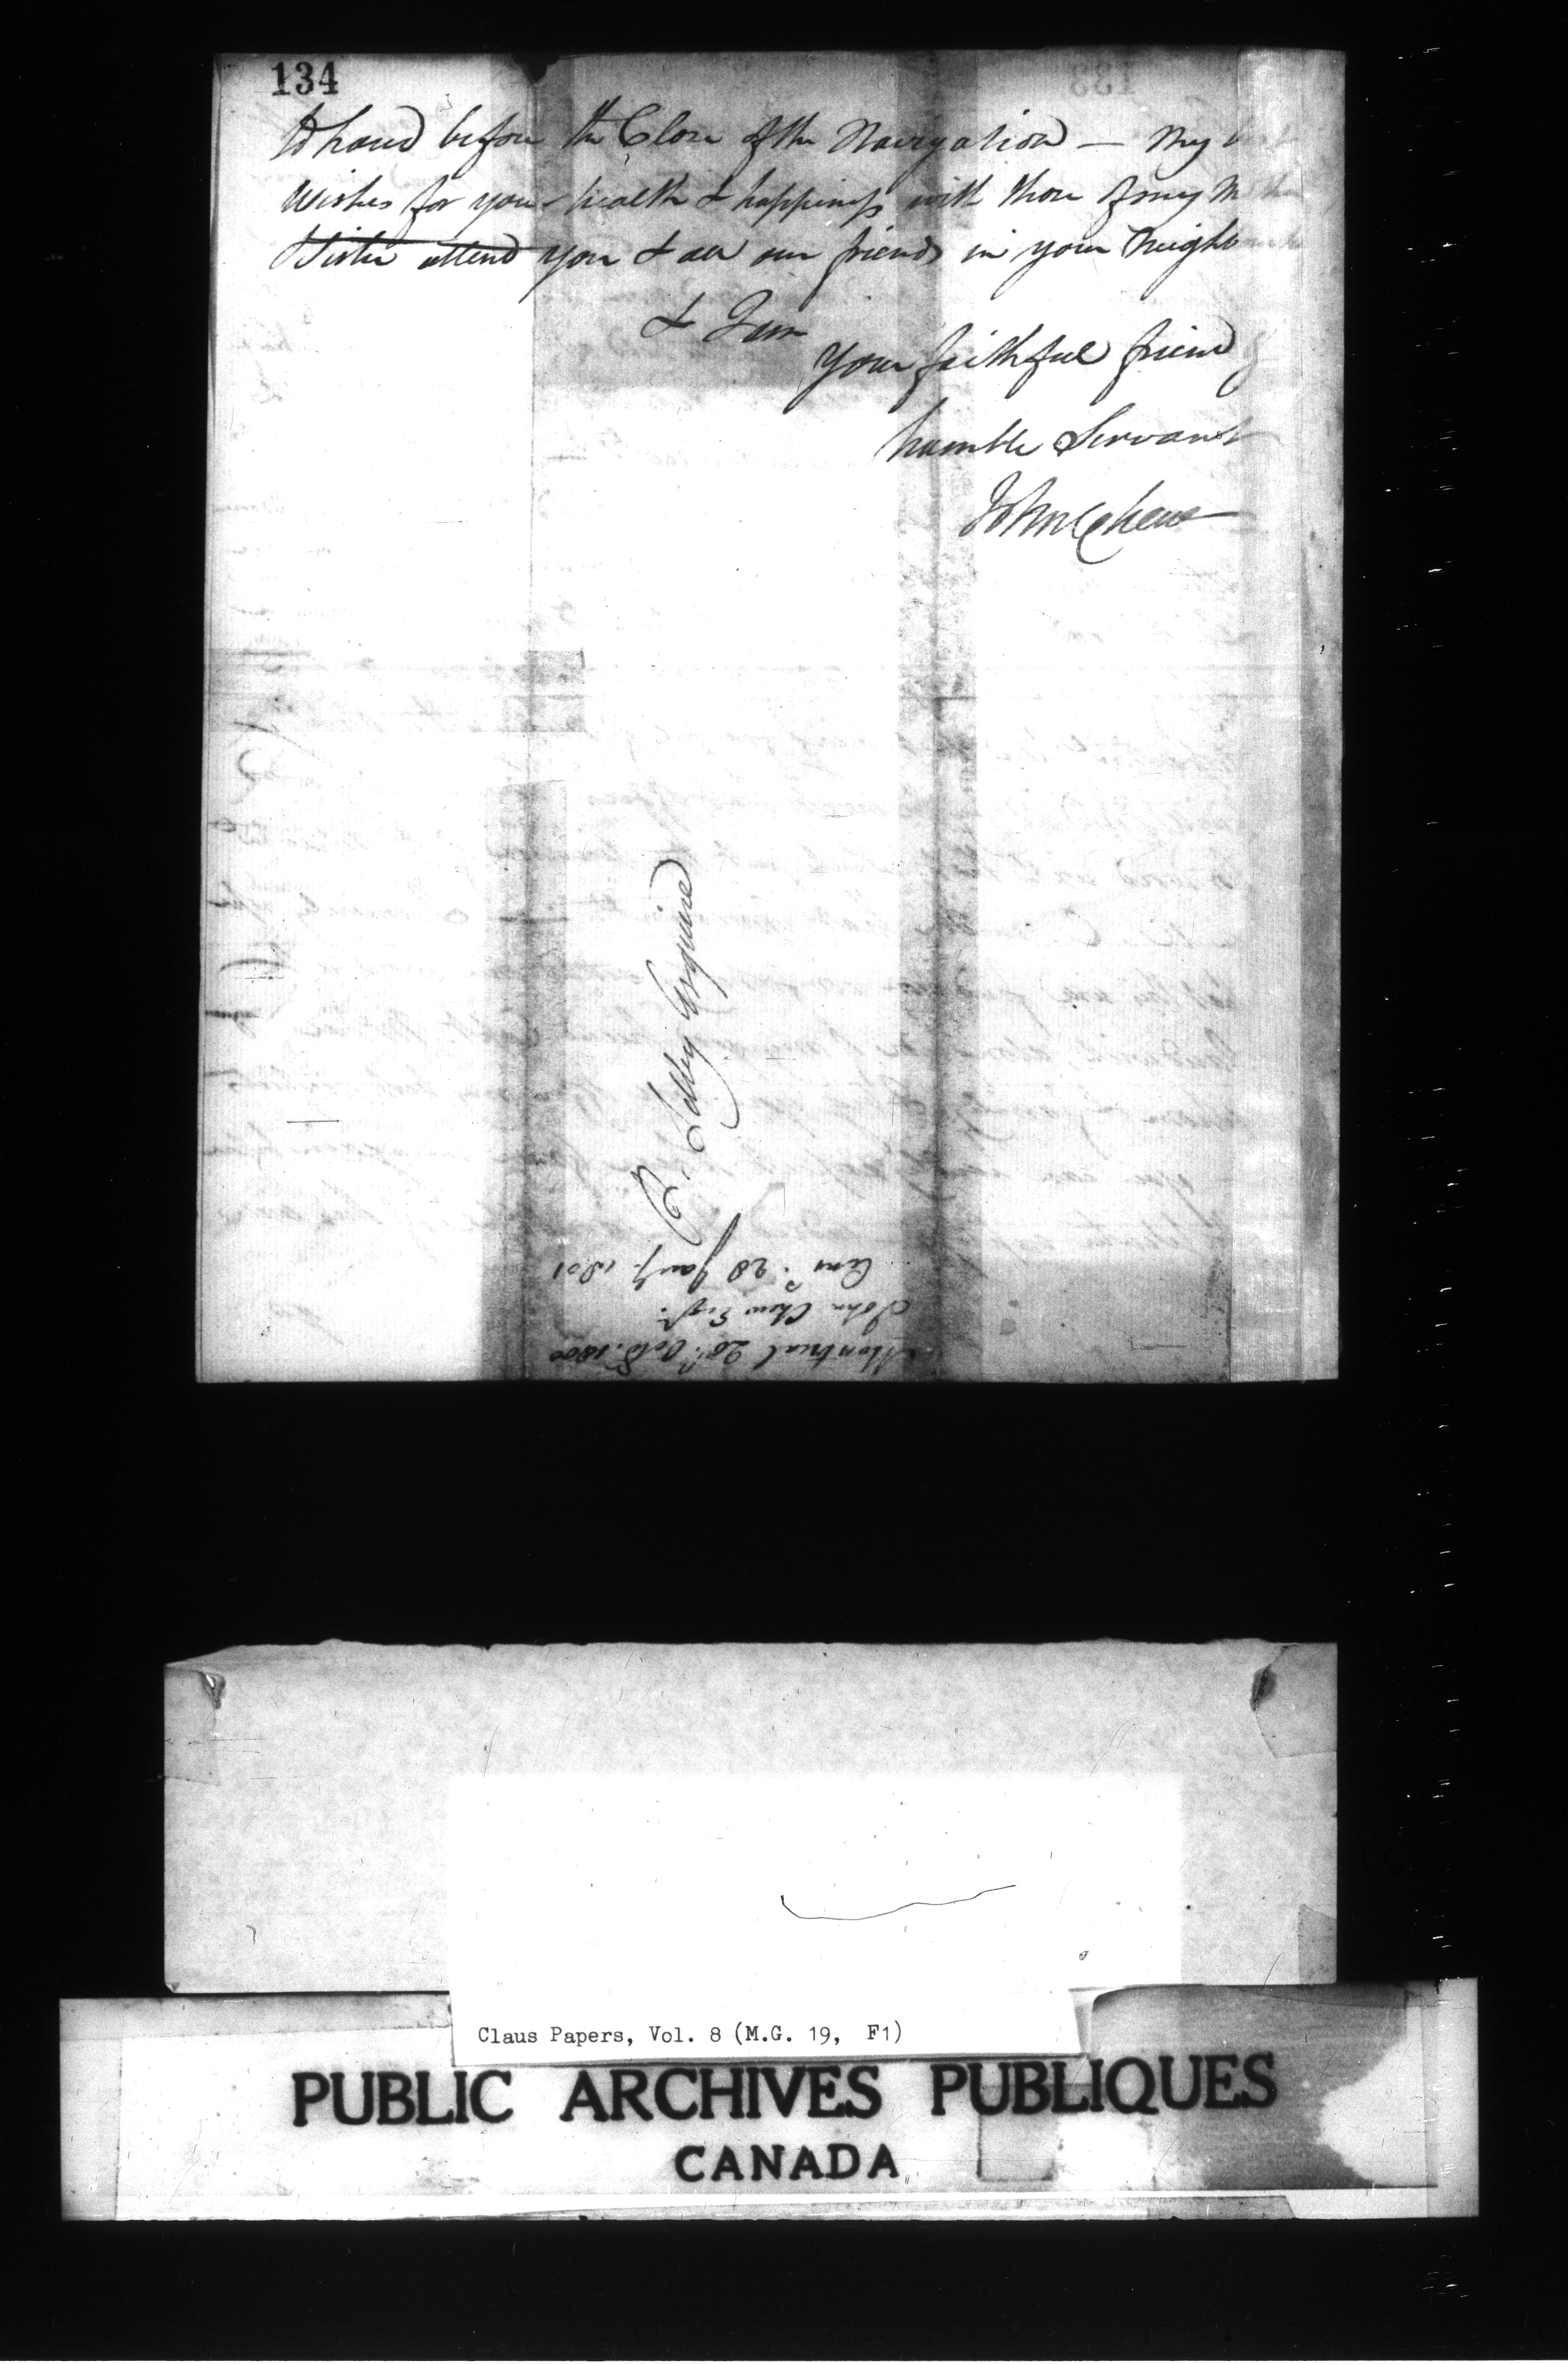 134
to hand before the Close of the Navigation — My
Wishes for your health & happiness with those of my
& Sister attend you & all our friends in your Neigh
& I am
Your faithful friend &
humble Servant
John Chew
P. Selby Esquire
Montreal 20th. Octr. 1800
John Chew Esqr.
Ansd. 28 Jany. 1801
Claus Papers, Vol. 8 (M.G. 19, F1)
PUBLIC ARCHIVES PUBLIQUES
CANADA